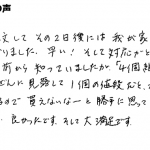 の声
文して その2日後には 我が家
りました。早い！ そして対応が
前から知っていましたが、「4個組
どんに見惚して 1個の値段だと
るので 買えないなーと勝手に思って
良かったです。そして 大満足です。